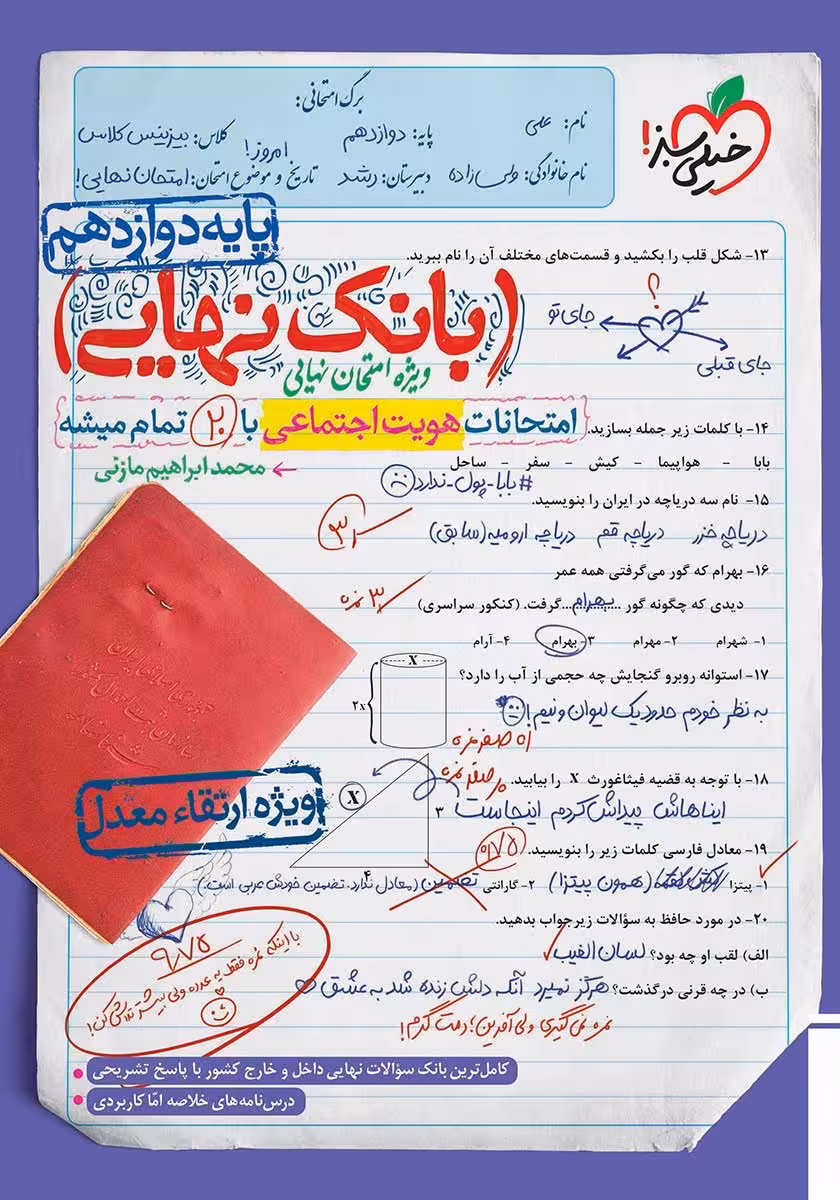 خیلی سبز!
برگ امتحانی:
نام: علی
پایه: دوازدهم
کلاس: بیزینس کلاس
نام خانوادگی: ولی‌زاده
دبیرستان: رشد
تاریخ و موضوع امتحان: امروز! امتحان نهایی!
پایه دوازدهم
۱۳- شکل قلب را بکشید و قسمت‌های مختلف آن را نام ببرید.
(بانک نهایی)
؟
جای تو
جای قبلی
ویژه امتحان نهایی
امتحانات هویت اجتماعی با ۲۰ تمام میشه
۱۴- با کلمات زیر جمله بسازید.
بابا - هواپیما - کیش - سفر - ساحل
محمدابراهیم مازنی
#بابا-پول-ندارد
۱۵- نام سه دریاچه در ایران را بنویسید.
دریاچه خزر دریاچه قم دریاچه ارومیه (سابق)
۱۶- بهرام که گور می‌گرفتی همه عمر
دیدی که چگونه گور ...بهرام... گرفت. (کنکور سراسری)
۳ نمره
۱- شهرام ۲- مهرام ۳- بهرام ۴- آرام
۱۷- استوانه روبرو گنجایش چه حجمی از آب را دارد؟
X
۲x
به نظر خودم حدود یک لیوان و نیم!
صفر نمره
۱۸- با توجه به قضیه فیثاغورث X را بیابید.
صفر نمره
ایناهاش پیداش کردم اینجاست
X
۳
۴
ویژه ارتقاء معدل
۱۹- معادل فارسی کلمات زیر را بنویسید.
۰/۷۵
۱- پیتزا (همون پیتزا) ۲- گارانتی تضمین (معادل ندارد. تضمین خودش عربی است.)
۲۰- در مورد حافظ به سؤالات زیر جواب بدهید.
الف) لقب او چه بود؟ لسان الغیب
ب) در چه قرنی درگذشت؟ هرگز نمیرد آنکه دلش زنده شد به عشق
نمره نمی‌گیری ولی آفرین! دمت گرم!
۹/۷۵
با اینکه نمره فقط یه عدده ولی بیشتر تلاش کن!
کامل‌ترین بانک سؤالات نهایی داخل و خارج کشور با پاسخ تشریحی
درس‌نامه‌های خلاصه امّا کاربردی